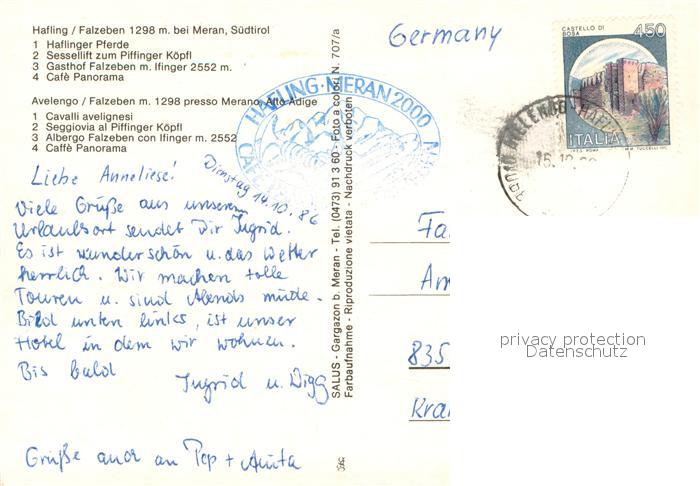 Hafling / Falzeben 1298 m. bei Meran, Südtirol
1 Haflinger Pferde
2 Sessellift zum Piffinger Köpfl
3 Gasthof Falzeben m. Ifinger 2552 m.
4 Cafè Panorama
Avelengo / Falzeben m. 1298 presso Merano, Alto Adige
1 Cavalli avelignesi
2 Seggiovia al Piffinger Köpfl
3 Albergo Falzeben con Ifinger m. 2552
4 Caffè Panorama
Germany
CASTELLO DI
BOSA
450
ITALIA
I.P.Z.S. ROMA
HAFLING · MERAN 2000
Dienstag 14.10.86
Liebe Anneliese!
Viele Grüße aus unserem
Urlaubsort sendet Dir Ingrid.
Es ist wunderschön u. das Wetter
herrlich. Wir machen tolle
Touren u. sind Abends müde.
Bild unten links, ist unser
Hotel in dem wir wohnen.
Bis bald
Ingrid u. Digg
Grüße auch an Pep + Anita
SALUS - Gargazon b. Meran - Tel. (0473) 91 3 60 - Foto a colori N. 707/a
Farbaufnahme - Riproduzione vietata - Nachdruck verboten
Fa
Am
835
Kra
privacy protection
Datenschutz